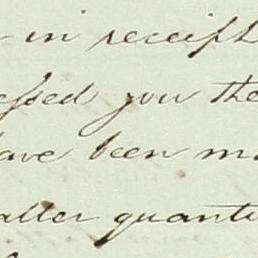 in receipt
essed you the
have been m
alter quanti